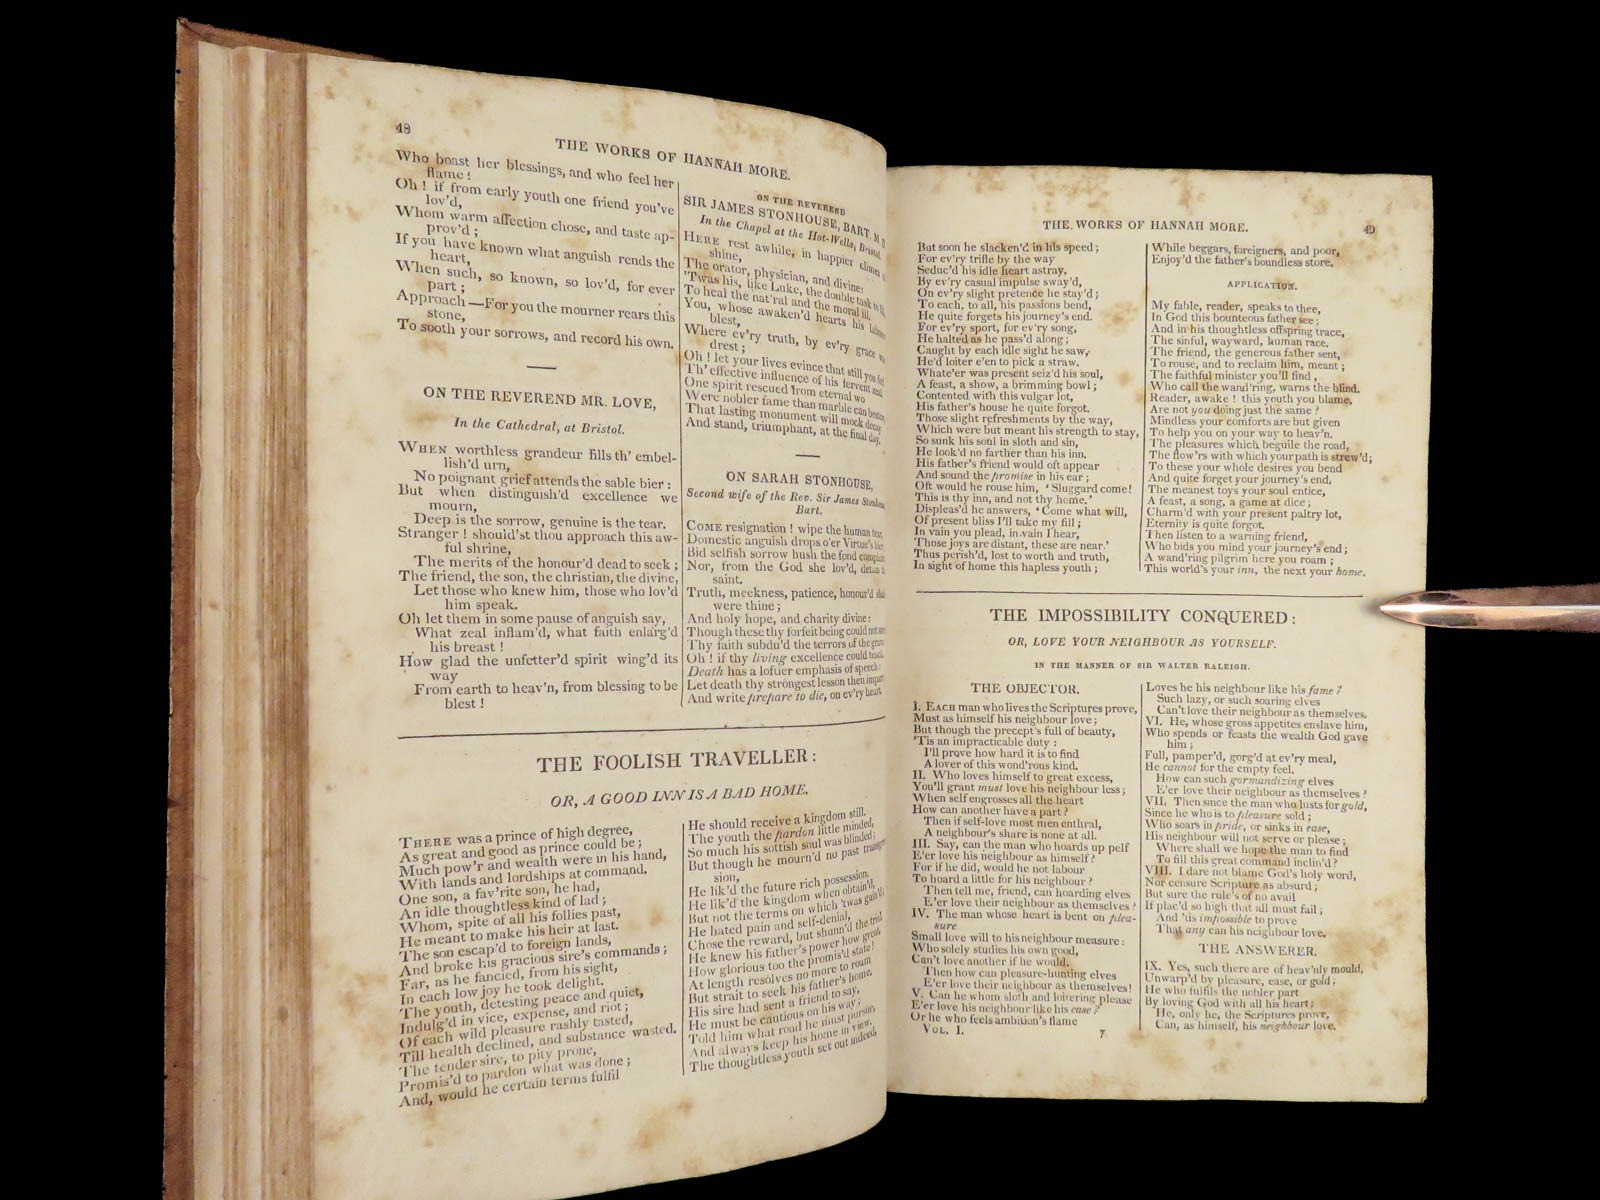 48
THE WORKS OF HANNAH MORE.
Who boast her blessings, and who feel her
flame!
Oh! if from early youth one friend you've
lov'd,
Whom warm affection chose, and taste ap-
prov'd;
If you have known what anguish rends the
heart,
When such, so known, so lov'd, for ever
part;
Approach—For you the mourner rears this
stone,
To sooth your sorrows, and record his own.
ON THE REVEREND MR. LOVE,
In the Cathedral, at Bristol.
WHEN worthless grandeur fills th' embel-
lish'd urn,
No poignant grief attends the sable bier:
But when distinguish'd excellence we
mourn,
Deep is the sorrow, genuine is the tear.
Stranger! should'st thou approach this aw-
ful shrine,
The merits of the honour'd dead to seek;
The friend, the son, the christian, the divine,
Let those who knew him, those who lov'd
him speak.
Oh let them in some pause of anguish say,
What zeal inflam'd, what faith enlarg'd
his breast!
How glad the unfetter'd spirit wing'd its
way
From earth to heav'n, from blessing to be
blest!
ON THE REVEREND
SIR JAMES STONHOUSE, BART. M.D
In the Chapel at the Hot-Wells, Bristol.
HERE rest awhile, in happier climes
shine,
The orator, physician, and divine:
'Twas his, like Luke, the double task to
To heal the nat'ral and the moral ill.
You, whose awaken'd hearts his labours
blest,
Where ev'ry truth, by ev'ry grace was
drest;
Oh! let your lives evince that still you feel
Th' effective influence of his fervent zeal
One spirit rescued from eternal wo
Were nobler fame than marble can bestow
That lasting monument will mock decay
And stand, triumphant, at the final day.
ON SARAH STONHOUSE,
Second wife of the Rev. Sir James Stonhouse
Bart.
COME resignation! wipe the human tear,
Domestic anguish drops o'er Virtue's bier;
Bid selfish sorrow hush the fond complaint
Nor, from the God she lov'd, detain
saint.
Truth, meekness, patience, honour'd shade
were thine;
And holy hope, and charity divine:
Though these thy forfeit being could not save
Thy faith subdu'd the terrors of the grave
Oh! if thy living excellence could teach,
Death has a loftier emphasis of speech:
Let death thy strongest lesson then impart
And write prepare to die, on ev'ry heart
THE FOOLISH TRAVELLER:
OR, A GOOD INN IS A BAD HOME.
THERE was a prince of high degree,
As great and good as prince could be;
Much pow'r and wealth were in his hand,
With lands and lordships at command.
One son, a fav'rite son, he had,
An idle thoughtless kind of lad;
Whom, spite of all his follies past,
He meant to make his heir at last.
The son escap'd to foreign lands,
And broke his gracious sire's commands;
Far, as he fancied, from his sight,
In each low joy he took delight.
The youth, detesting peace and quiet,
Indulg'd in vice, expense, and riot;
Of each wild pleasure rashly tasted,
Till health declined, and substance wasted.
The tender sire, to pity prone,
Promis'd to pardon what was done;
And, would he certain terms fulfil
He should receive a kingdom still.
The youth the pardon little minded,
So much his sottish soul was blinded;
But though he mourn'd no past transgres-
sion,
He lik'd the future rich possession.
He lik'd the kingdom when obtain'd,
But not the terms on which 'twas gain'd;
He hated pain and self-denial,
Chose the reward, but shunn'd the trial
He knew his father's power how great,
How glorious too the promis'd state!
At length resolves no more to roam
But strait to seek his father's home.
His sire had sent a friend to say,
He must be cautious on his way;
Told him what road he must pursue,
And always keep his home in view,
The thoughtless youth set out indeed,
THE WORKS OF HANNAH MORE.
49
But soon he slacken'd in his speed;
For ev'ry trifle by the way
Seduc'd his idle heart astray.
By ev'ry casual impulse sway'd,
On ev'ry slight pretence he stay'd;
To each, to all, his passions bend,
He quite forgets his journey's end.
For ev'ry sport, for ev'ry song,
He halted as he pass'd along;
Caught by each idle sight he saw,
He'd loiter e'en to pick a straw.
Whate'er was present seiz'd his soul,
A feast, a show, a brimming bowl;
Contented with this vulgar lot,
His father's house he quite forgot.
Those slight refreshments by the way,
Which were but meant his strength to stay,
So sunk his soul in sloth and sin,
He look'd no farther than his inn.
His father's friend would oft appear
And sound the promise in his ear;
Oft would he rouse him, 'Sluggard come!
This is thy inn, and not thy home.'
Displeas'd he answers, 'Come what will,
Of present bliss I'll take my fill;
In vain you plead, in vain I hear,
Those joys are distant, these are near.'
Thus perish'd, lost to worth and truth,
In sight of home this hapless youth;
While beggars, foreigners, and poor,
Enjoy'd the father's boundless store.
APPLICATION.
My fable, reader, speaks to thee,
In God this bounteous father see;
And in his thoughtless offspring trace,
The sinful, wayward, human race.
The friend, the generous father sent,
To rouse, and to reclaim him, meant;
The faithful minister you'll find,
Who call the wand'ring, warns the blind.
Reader, awake! this youth you blame,
Are not you doing just the same?
Mindless your comforts are but given
To help you on your way to heav'n.
The pleasures which beguile the road,
The flow'rs with which your path is strew'd;
To these your whole desires you bend
And quite forget your journey's end.
The meanest toys your soul entice,
A feast, a song, a game at dice;
Charm'd with your present paltry lot,
Eternity is quite forgot.
Then listen to a warning friend,
Who bids you mind your journey's end;
A wand'ring pilgrim here you roam;
This world's your inn, the next your home.
THE IMPOSSIBILITY CONQUERED:
OR, LOVE YOUR NEIGHBOUR AS YOURSELF.
IN THE MANNER OF SIR WALTER RALEIGH.
THE OBJECTOR.
I. EACH man who lives the Scriptures prove,
Must as himself his neighbour love;
But though the precept's full of beauty,
'Tis an impracticable duty:
I'll prove how hard it is to find
A lover of this wond'rous kind.
II. Who loves himself to great excess,
You'll grant must love his neighbour less;
When self engrosses all the heart
How can another have a part?
Then if self-love most men enthral,
A neighbour's share is none at all.
III. Say, can the man who hoards up pelf
E'er love his neighbour as himself?
For if he did, would he not labour
To hoard a little for his neighbour?
Then tell me, friend, can hoarding elves
E'er love their neighbour as themselves?
IV. The man whose heart is bent on plea-
sure
Small love will to his neighbour measure:
Who solely studies his own good,
Can't love another if he would.
Then how can pleasure-hunting elves
E'er love their neighbour as themselves!
V. Can he whom sloth and loitering please
E'er love his neighbour like his ease?
Or he who feels ambition's flame
VOL. I.
7
Loves he his neighbour like his fame?
Such lazy, or such soaring elves
Can't love their neighbour as themselves.
VI. He, whose gross appetites enslave him,
Who spends or feasts the wealth God gave
him;
Full, pamper'd, gorg'd at ev'ry meal,
He cannot for the empty feel.
How can such gormandizing elves
E'er love their neighbour as themselves?
VII. Then since the man who lusts for gold,
Since he who is to pleasure sold;
Who soars in pride, or sinks in ease,
His neighbour will not serve or please;
Where shall we hope the man to find
To fill this great command inclin'd?
VIII. I dare not blame God's holy word,
Nor censure Scripture as absurd;
But sure the rule's of no avail
If plac'd so high that all must fail;
And 'tis impossible to prove
That any can his neighbour love.
THE ANSWERER.
IX. Yes, such there are of heav'nly mould,
Unwarp'd by pleasure, ease, or gold;
He who fulfils the nobler part
By loving God with all his heart;
He, only he, the Scriptures prove,
Can, as himself, his neighbour love.